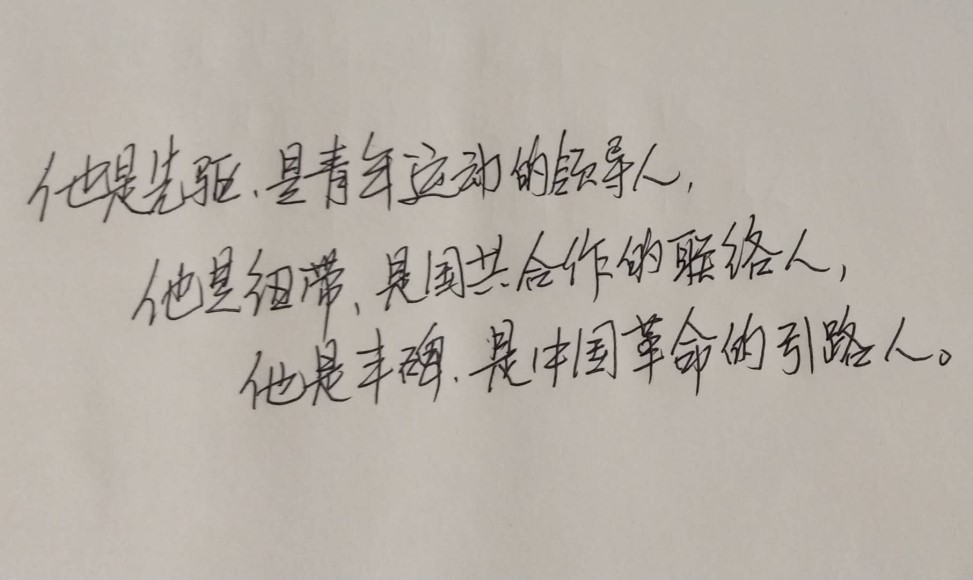 他是先驱、是青年运动的领导人，
他是纽带、是国共合作的联络人，
他是丰碑、是中国革命的引路人。